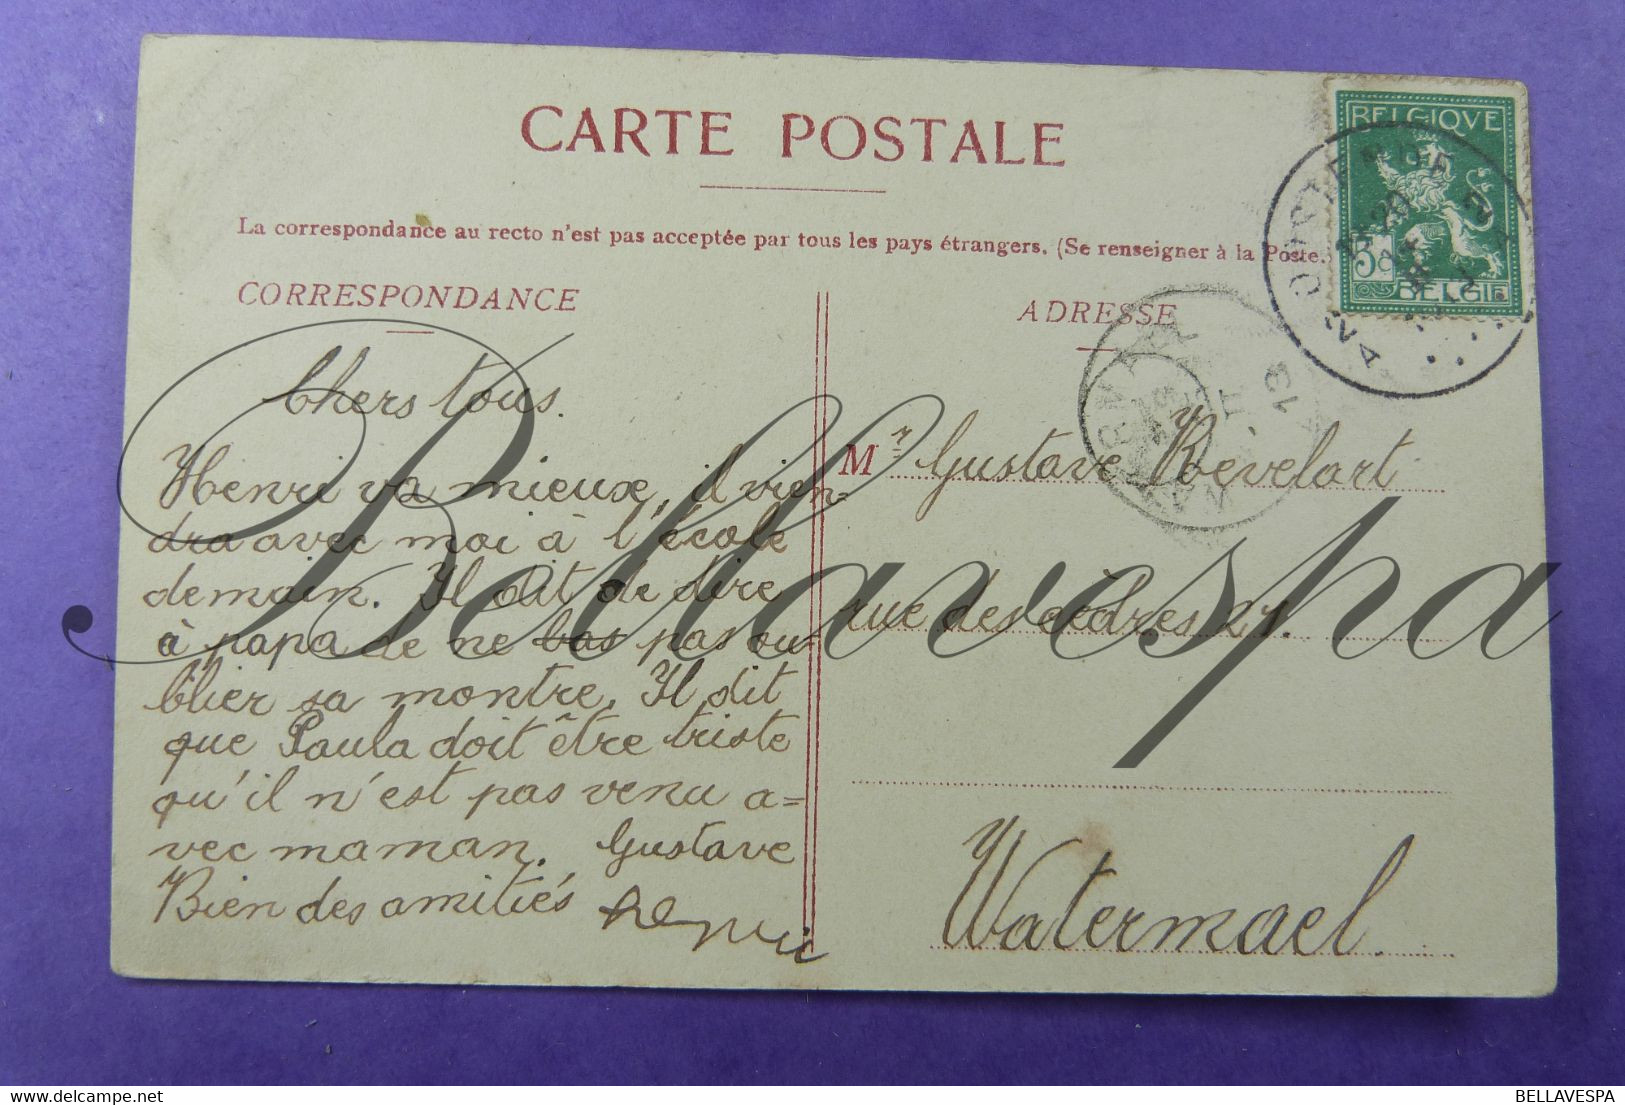 CARTE POSTALE
La correspondance au recto n'est pas acceptée par tous les pays étrangers. (Se renseigner à la Poste.)
CORRESPONDANCE
Chers tous.
Henri va mieux, il vien=
dra avec moi à l'école
demain. Il dit de dire
à papa de ne bas pas ou=
blier sa montre. Il dit
que Paula doit être triste
qu'il n'est pas venu a=
vec maman. Gustave
Bien des amitiés
ADRESSE
Mr Gustave Révelart
rue des cèdres 21.
Watermael.
BELGIQVE
5c
BELGIË
OOSTENDE
13
Bellavespa
BELLAVESPA